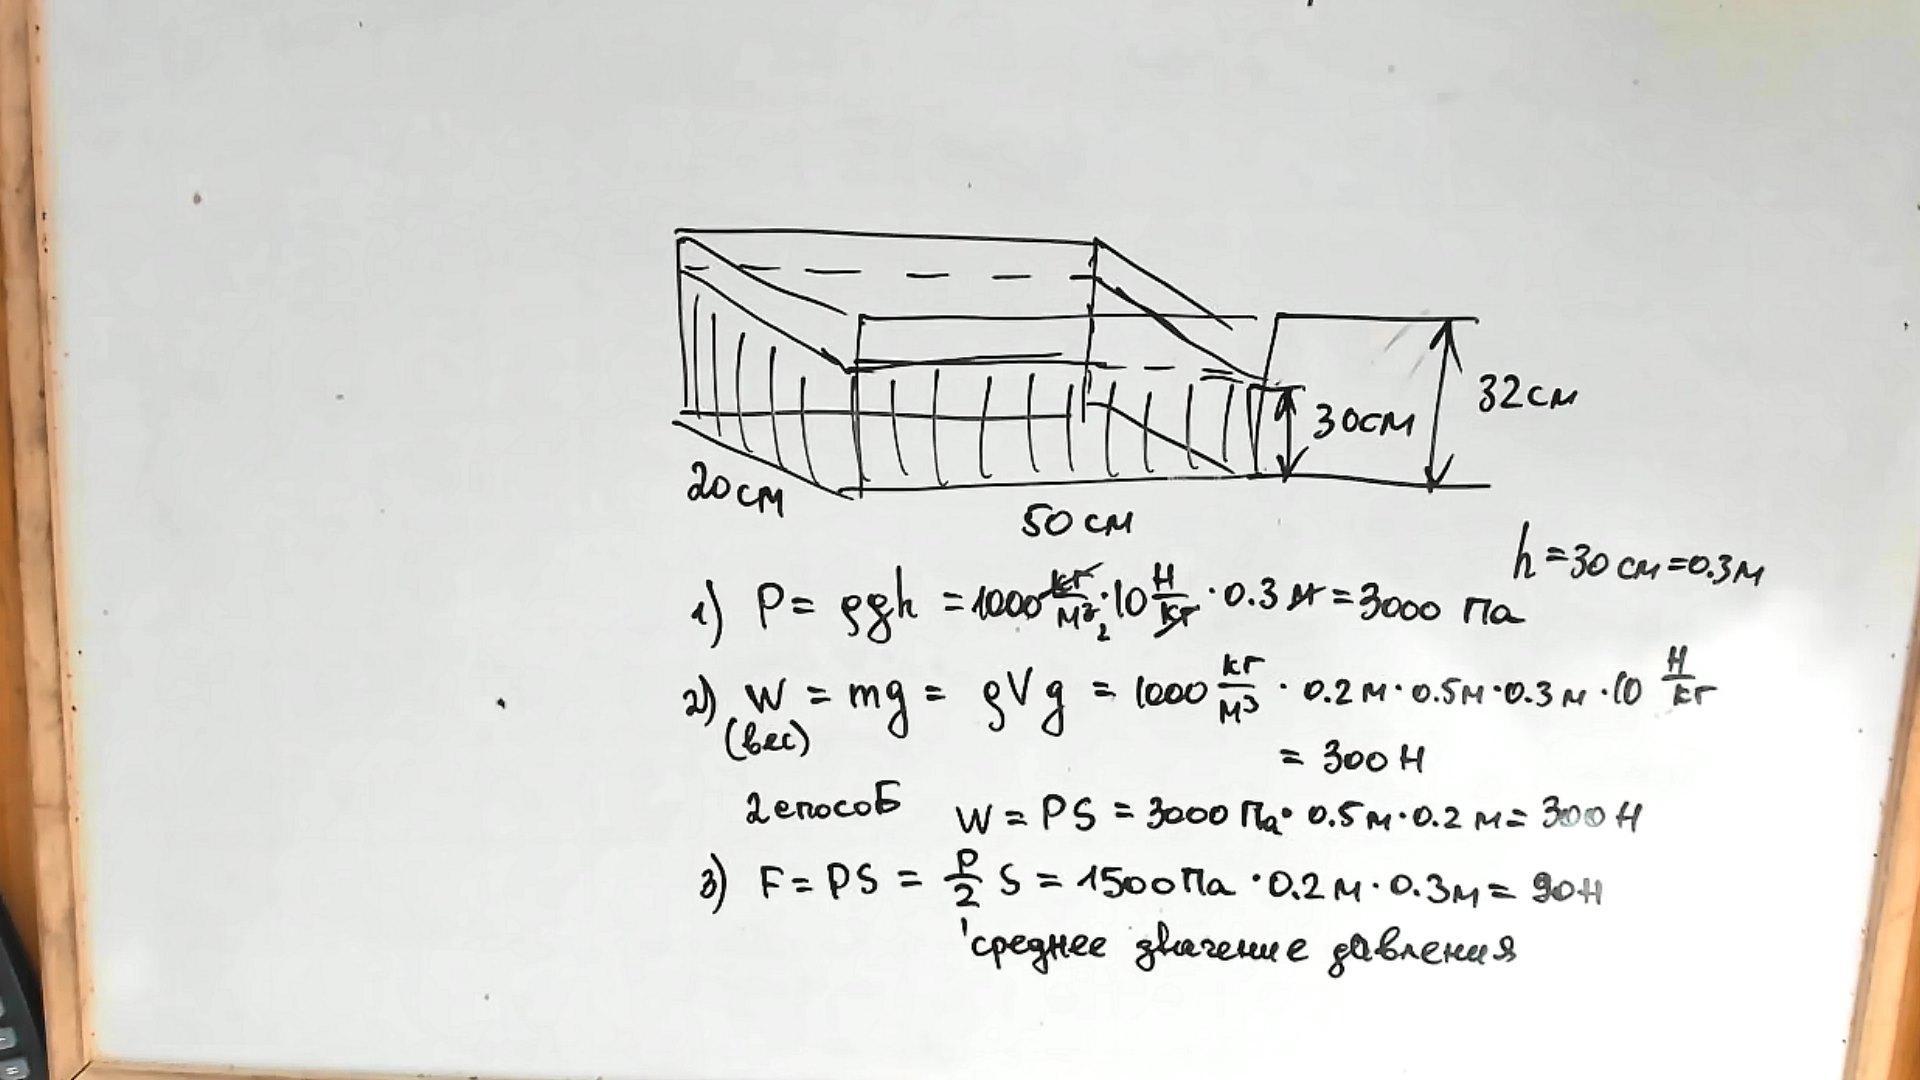 32см
30см
20см
50 см
h = 30 см = 0.3м
1) P = ρgh = 1000 кг/м³ · 10 Н/кг · 0.3 м = 3000 Па
2
2) W = mg = ρVg = 1000 кг/м³ · 0.2 м · 0.5м · 0.3 м · 10 Н/кг
(вес)
= 300 Н
2 способ W = PS = 3000 Па · 0.5 м · 0.2 м = 300 Н
3) F = PS = P/2 S = 1500 Па · 0.2 м · 0.3м = 90Н
среднее значение давления